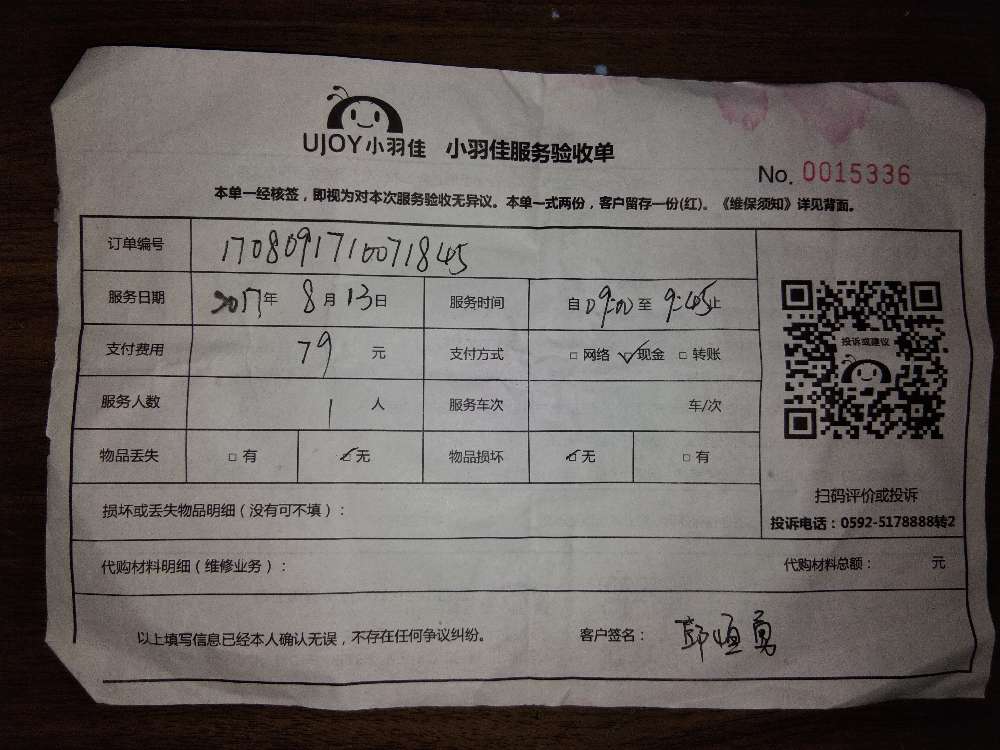 UJOY小羽佳 小羽佳服务验收单
No. 0015336
本单一经核签，即视为对本次服务验收无异议。本单一式两份，客户留存一份(红)。《维保须知》详见背面。
订单编号 1708091710071845
服务日期 2017年 8月13日 服务时间 自09:00至9:45止
支付费用 79 元 支付方式 □网络 ☑现金 □转账
投诉或建议
服务人数 1 人 服务车次 车/次
物品丢失 □有 ☑无 物品损坏 ☑无 □有
扫码评价或投诉
损坏或丢失物品明细（没有可不填）：
投诉电话：0592-5178888转2
代购材料明细（维修业务）： 代购材料总额： 元
以上填写信息已经本人确认无误，不存在任何争议纠纷。 客户签名：